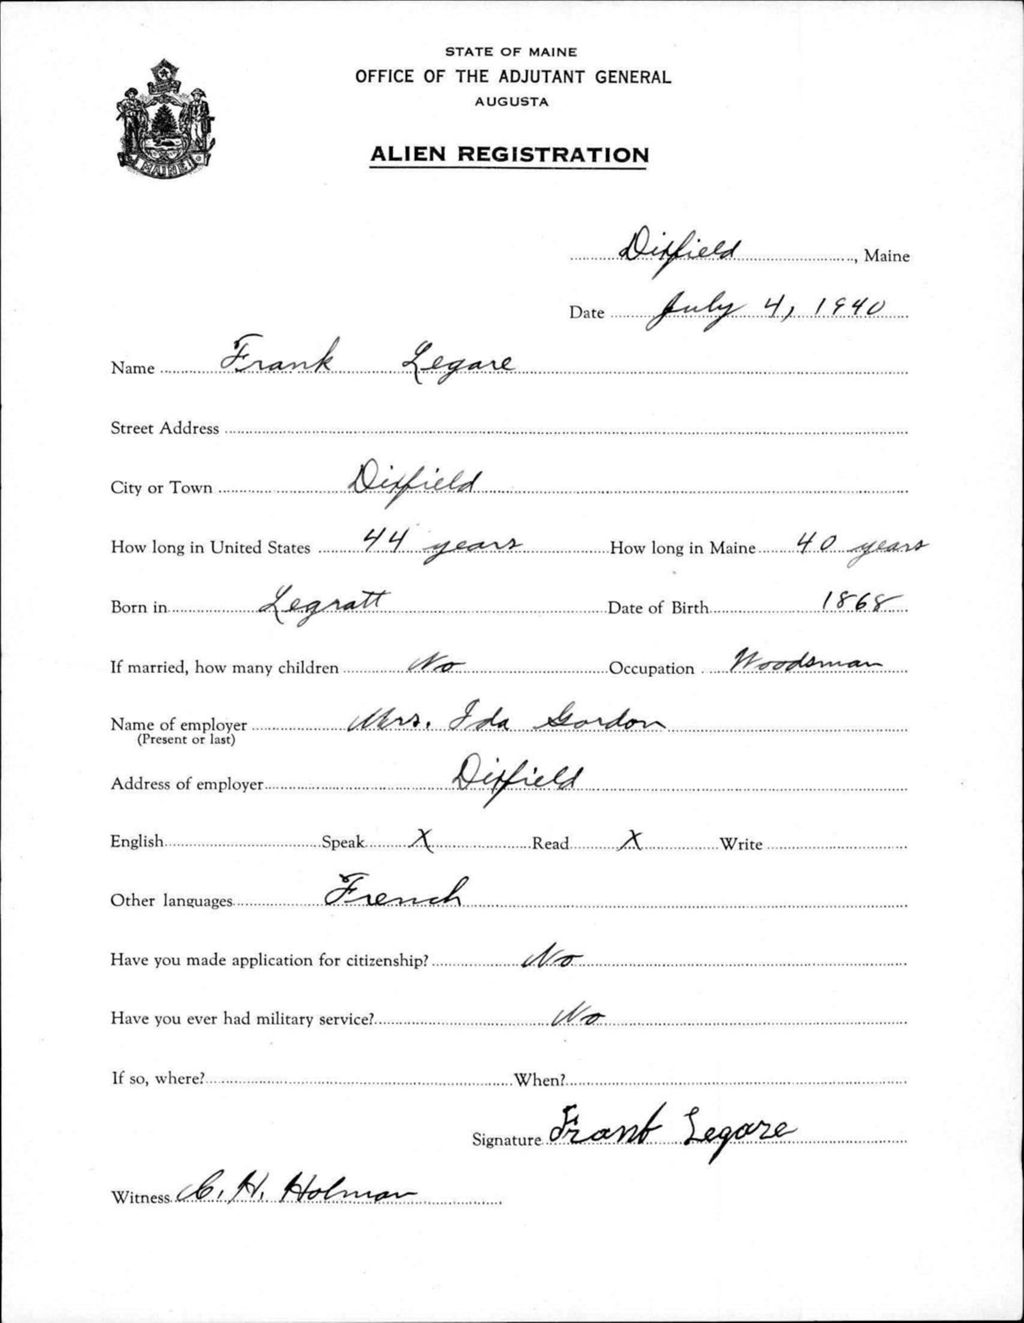 STATE OF MAINE
OFFICE OF THE ADJUTANT GENERAL
AUGUSTA
ALIEN REGISTRATION
MAINE
Dixfield, Maine
Date July 4, 1940
Name Frank Legare
Street Address
City or Town Dixfield
How long in United States 44 years How long in Maine 40 years
Born in Legratt Date of Birth 1868
If married, how many children No Occupation Woodsman
Name of employer Mrs. Ida Gordon
(Present or last)
Address of employer Dixfield
English Speak X Read X Write
Other languages French
Have you made application for citizenship? No
Have you ever had military service? No
If so, where? When?
Signature Frank Legare
Witness C. H. Holman